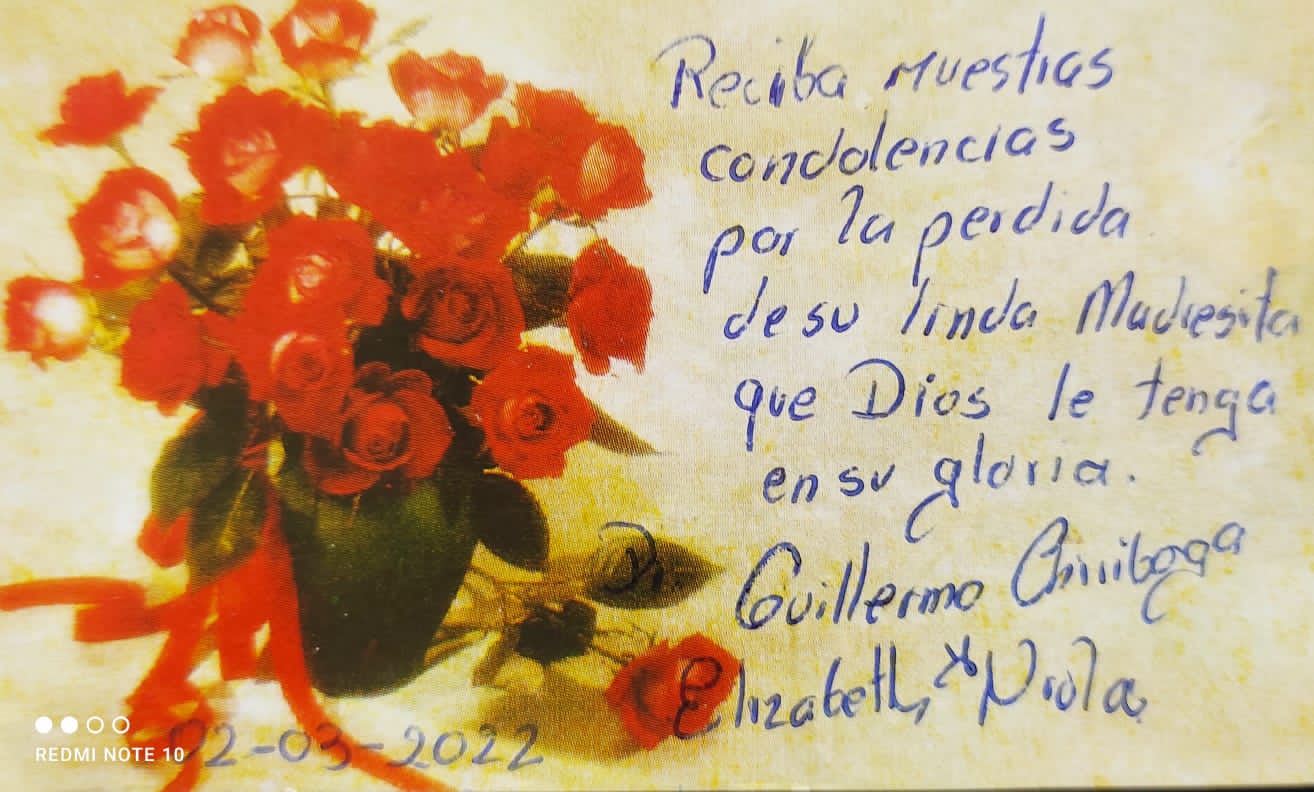 Reciba nuestras
condolencias
por la perdida
de su linda Madresita
que Dios le tenga
en su gloria.
Dr. Guillermo Chiriboga
Elizabeth
02-03-2022
REDMI NOTE 10